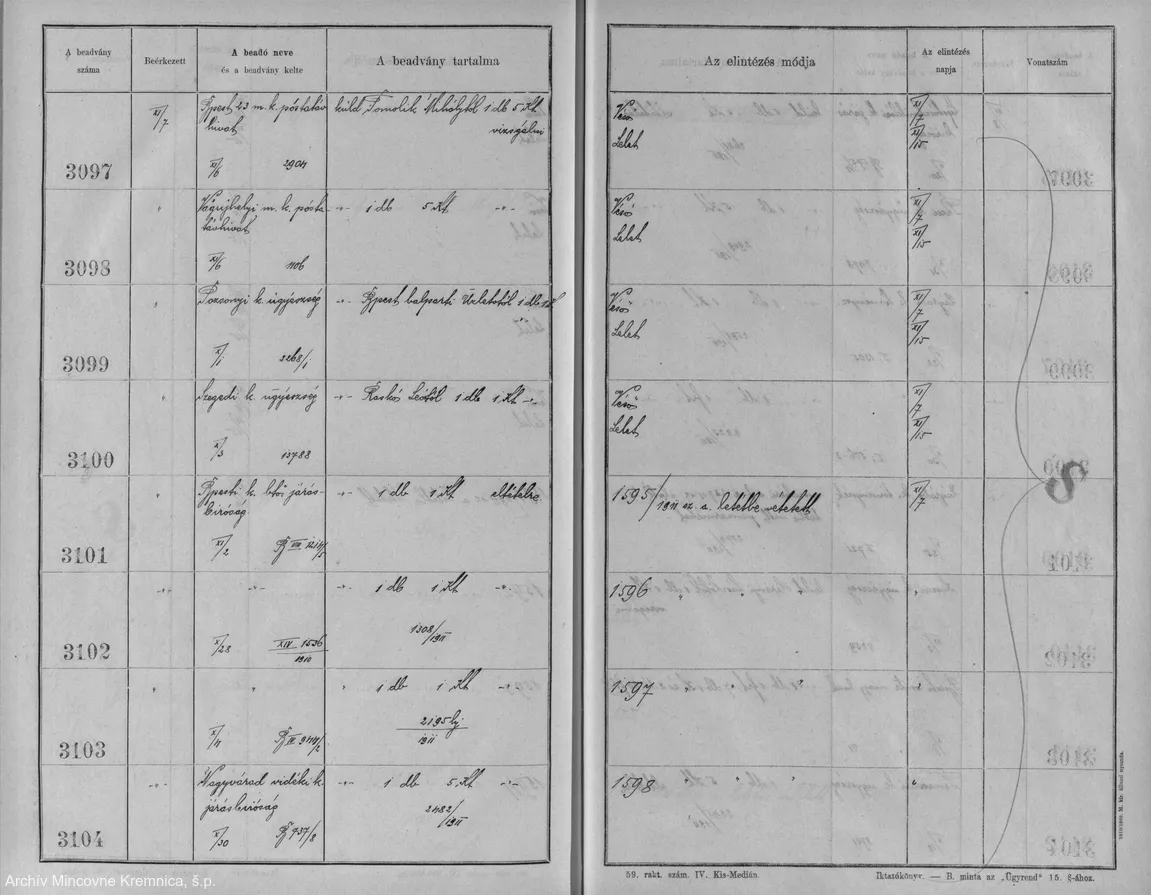 A beadvány
száma
Beérkezett
A beadó neve
és a beadvány kelte
A beadvány tartalma
Az elintézés módja
Az elintézés
napja
Vonatszám
3097
XI/7
Bpest 23 m. k. póstatáv
hivat
XI/6 2904
küld Tomolik Mihálytól 1 db 5 Kt
vizsgálni
Véső
Lelet
XI/7
XI/15
3098
"
Vágujhelyi m. k. pósta
táshivat
XI/6 1106
-"- 1 db 5 Kt -"-
Véső
Lelet
XI/7
XI/15
3099
"
Pozsonyi k. ügyészség
XI/1 3268/1
-"- Bpest balparti 1 db
Véső
Lelet
XI/7
XI/15
3100
"
Szegedi k. ügyészség
X/3 13788
-"- Raskós Leótól 1 db 1 Kt -"-
Véső
Lelet
XI/7
XI/15
3101
"
Bpesti k. btői járás-
biróság
XI/2 B VIII
-"- 1 db 1 Kt eltételre
1595/1911 sz. a. letétbe vétetett
XI/7
3102
-"- -"-
X/28 XIV 1536/1910
-"- 1 db 1 Kt -"-
1308/1911
1596 " " "
"
3103
" "
XI/4
" 1 db 1 Kt -"-
2195
1911
1597 " " "
"
3104
-"-
Nagyvárad vidéki k
járásbiróság
X/30 B 937/8
-"- 1 db 5 Kt -"-
2482/1911
1598 " " "
"
S
59. rakt. szám. IV. Kis-Medián.
Iktatókönyv. — B. minta az „Ügyrend" 15. §-ához.
Archív Mincovne Kremnica, š.p.